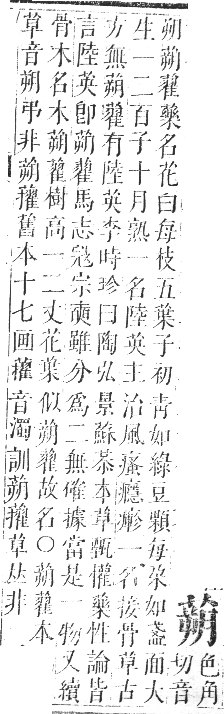 蒴
色角
切音
朔蒴藋藥名花白每枝五葉子初靑如綠豆顆每朶如盞面大
生一二百子十月熟一名陸英主治風瘙癮𤺋一名接骨草古
方無蒴藋有陸英李時珍曰陶弘景蘇恭本草甄權藥性論皆
言陸英卽蒴藋馬志寇宗奭雖分爲二無確據當是一物又續
骨木名木蒴藋樹高一二丈花葉似蒴藋故名〇蒴藋本
草音朔弔非蒴舊本十七画音濁訓蒴草𠀤非